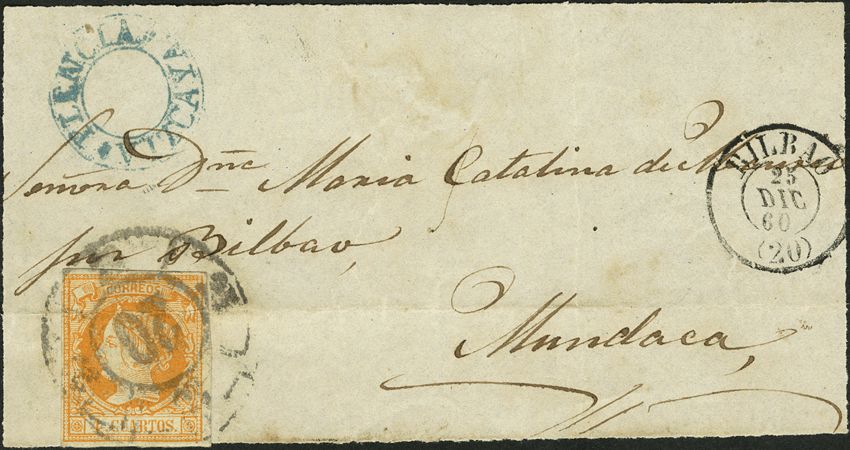 PLENCIA VIZCALLA
Señora Dnª Maria Catalina de
por Bilbao,
Mundaca,
BILBAO
25
DIC
60
(20)
CORREOS
20
4 CUARTOS.